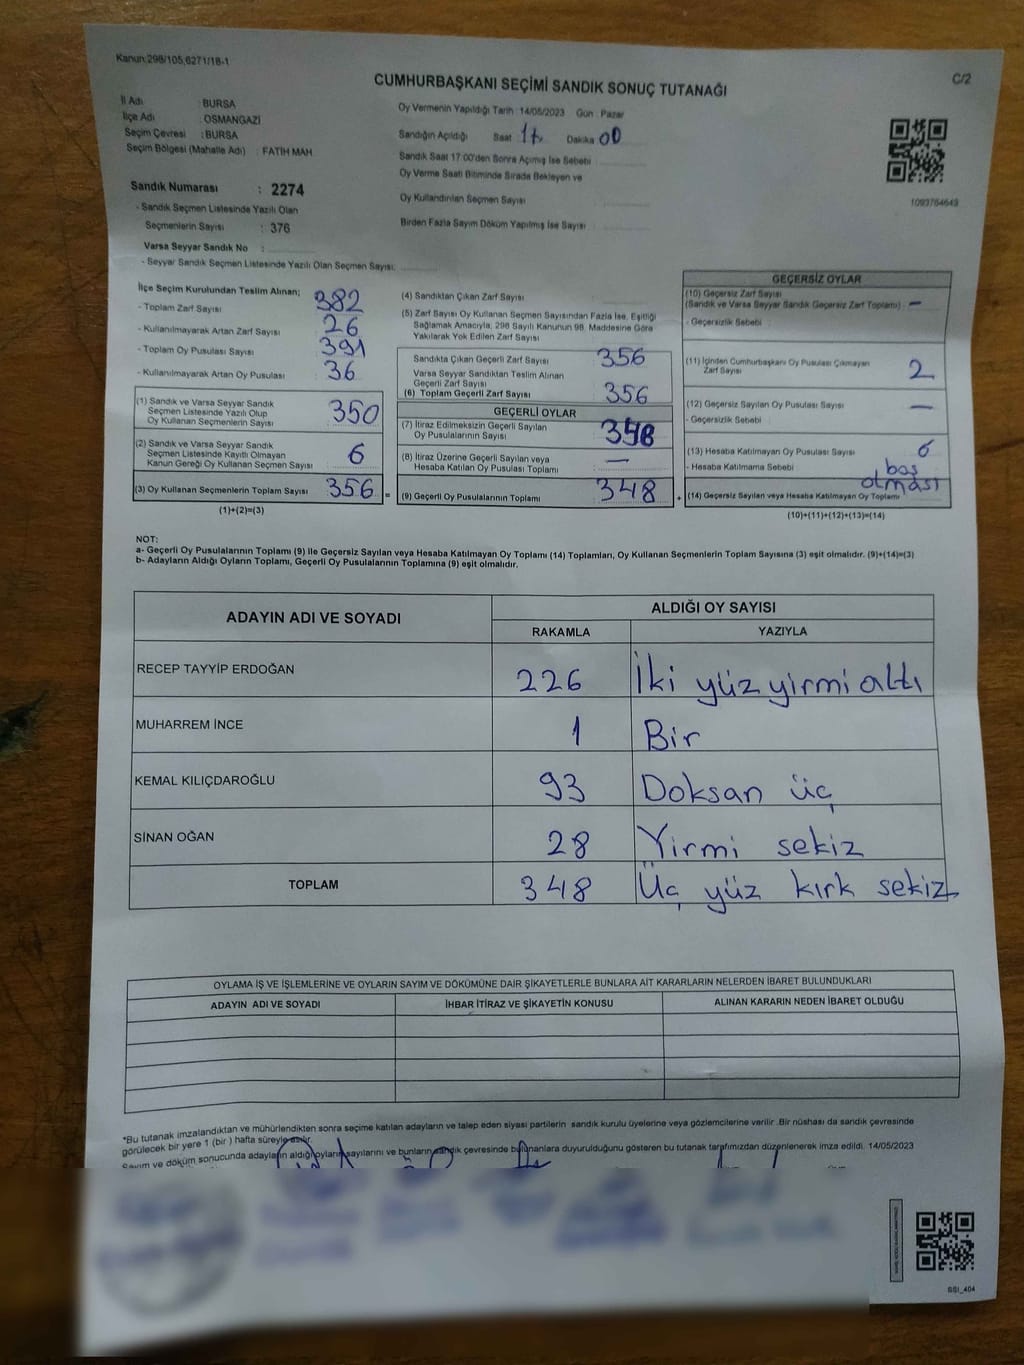 Kanun:298/105,6271/18-1
C/2
CUMHURBAŞKANI SEÇİMİ SANDIK SONUÇ TUTANAĞI
İl Adı : BURSA
İlçe Adı : OSMANGAZİ
Seçim Çevresi : BURSA
Seçim Bölgesi (Mahalle Adı) : FATİH MAH
Sandık Numarası : 2274
- Sandık Seçmen Listesinde Yazılı Olan
Seçmenlerin Sayısı : 376
Varsa Seyyar Sandık No :
- Seyyar Sandık Seçmen Listesinde Yazılı Olan Seçmen Sayısı:
Oy Vermenin Yapıldığı Tarih : 14/05/2023 Gün : Pazar
Sandığın Açıldığı Saat 17 Dakika 00
Sandık Saat 17:00'den Sonra Açımış İse Sebebi
Oy Verme Saati Bitiminde Sırada Bekleyen ve
Oy Kullandırılan Seçmen Sayısı
Birden Fazla Sayım Döküm Yapılmış İse Sayısı :
1093764649
İlçe Seçim Kurulundan Teslim Alınan;
- Toplam Zarf Sayısı 382
- Kullanılmayarak Artan Zarf Sayısı 26
- Toplam Oy Pusulası Sayısı 391
- Kullanılmayarak Artan Oy Pusulası 36
(1) Sandık ve Varsa Seyyar Sandık
Seçmen Listesinde Yazılı Olup
Oy Kullanan Seçmenlerin Sayısı 350
(2) Sandık ve Varsa Seyyar Sandık
Seçmen Listesinde Kayıtlı Olmayan
Kanun Gereği Oy Kullanan Seçmen Sayısı 6
(3) Oy Kullanan Seçmenlerin Toplam Sayısı 356 =
(1)+(2)=(3)
(4) Sandıktan Çıkan Zarf Sayısı
(5) Zarf Sayısı Oy Kullanan Seçmen Sayısından Fazla İse, Eşitliği
Sağlamak Amacıyla, 298 Sayılı Kanunun 98. Maddesine Göre
Yakılarak Yok Edilen Zarf Sayısı
Sandıkta Çıkan Geçerli Zarf Sayısı 356
Varsa Seyyar Sandıktan Teslim Alınan
Geçerli Zarf Sayısı
(6) Toplam Geçerli Zarf Sayısı 356
GEÇERLİ OYLAR
(7) İtiraz Edilmeksizin Geçerli Sayılan
Oy Pusulalarının Sayısı 348
(8) İtiraz Üzerine Geçerli Sayılan veya
Hesaba Katılan Oy Pusulası Toplamı —
(9) Geçerli Oy Pusulalarının Toplamı 348 +
GEÇERSİZ OYLAR
(10) Geçersiz Zarf Sayısı
(Sandık ve Varsa Seyyar Sandık Geçersiz Zarf Toplamı) : —
- Geçersizlik Sebebi
(11) İçinden Cumhurbaşkanı Oy Pusulası Çıkmayan
Zarf Sayısı 2
(12) Geçersiz Sayılan Oy Pusulası Sayısı —
- Geçersizlik Sebebi
(13) Hesaba Katılmayan Oy Pusulası Sayısı 6
- Hesaba Katılmama Sebebi boş
olması
(14) Geçersiz Sayılan veya Hesaba Katılmayan Oy Toplamı
(10)+(11)+(12)+(13)=(14)
NOT:
a- Geçerli Oy Pusulalarının Toplamı (9) ile Geçersiz Sayılan veya Hesaba Katılmayan Oy Toplamı (14) Toplamları, Oy Kullanan Seçmenlerin Toplam Sayısına (3) eşit olmalıdır. (9)+(14)=(3)
b- Adayların Aldığı Oyların Toplamı, Geçerli Oy Pusulalarının Toplamına (9) eşit olmalıdır.
ADAYIN ADI VE SOYADI ALDIĞI OY SAYISI
RAKAMLA YAZIYLA
RECEP TAYYİP ERDOĞAN 226 İki yüz yirmi altı
MUHARREM İNCE 1 Bir
KEMAL KILIÇDAROĞLU 93 Doksan üç
SİNAN OĞAN 28 Yirmi sekiz
TOPLAM 348 Üç yüz kırk sekiz
OYLAMA İŞ VE İŞLEMLERİNE VE OYLARIN SAYIM VE DÖKÜMÜNE DAİR ŞİKAYETLERLE BUNLARA AİT KARARLARIN NELERDEN İBARET BULUNDUKLARI
ADAYIN ADI VE SOYADI İHBAR İTİRAZ VE ŞİKAYETİN KONUSU ALINAN KARARIN NEDEN İBARET OLDUĞU
*Bu tutanak imzalandıktan ve mühürlendikten sonra seçime katılan adayların ve talep eden siyasi partilerin sandık kurulu üyelerine veya gözlemcilerine verilir .Bir nüshası da sandık çevresinde
görülecek bir yere 1 (bir ) hafta süreyle asılır.
Sayım ve döküm sonucunda adayların aldığı oyların sayılarını ve bunların sandık çevresinde bulunanlara duyurulduğunu gösteren bu tutanak tarafımızdan düzenlenerek imza edildi. 14/05/2023
SSI_404